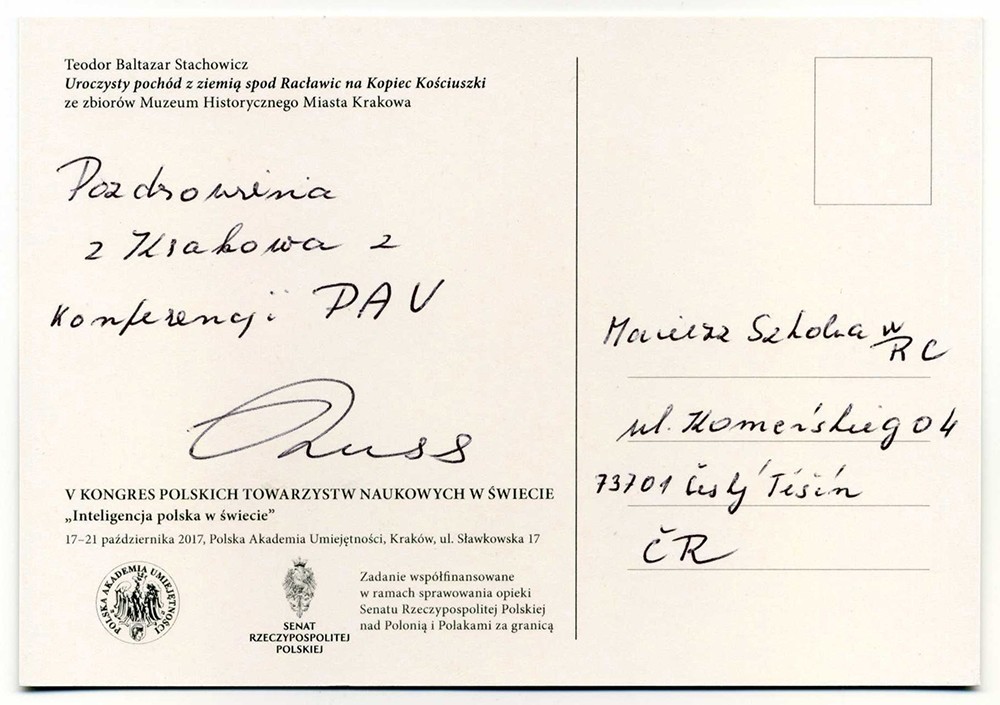 Teodor Baltazar Stachowicz
Uroczysty pochód z ziemią spod Racławic na Kopiec Kościuszki
ze zbiorów Muzeum Historycznego Miasta Krakowa
Pozdrowinia
z Krakowa z
Konferencji PAU
V KONGRES POLSKICH TOWARZYSTW NAUKOWYCH W ŚWIECIE
„Inteligencja polska w świecie”
17–21 października 2017, Polska Akademia Umiejętności, Kraków, ul. Sławkowska 17
POLSKA AKADEMIA UMIEJĘTNOŚCI
SENAT
RZECZYPOSPOLITEJ
POLSKIEJ
Zadanie współfinansowane
w ramach sprawowania opieki
Senatu Rzeczypospolitej Polskiej
nad Polonią i Polakami za granicą
Macierz Szkolna w RC
ul. Komeńskiego 4
73701 Český Těšín
ČR